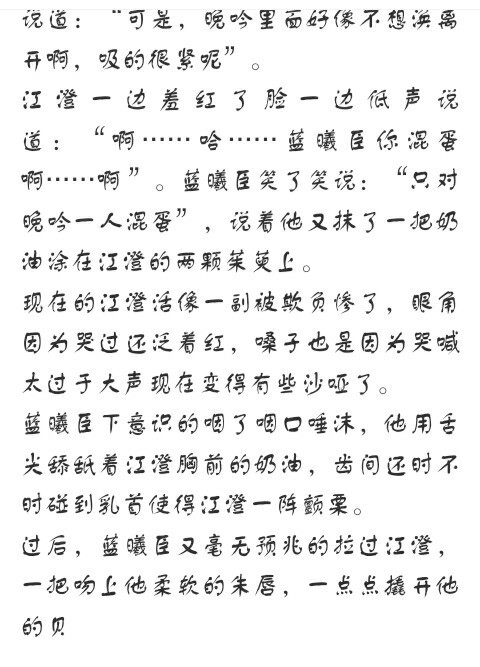 说道：“可是，晚吟里面好像不想涣离
开啊，吸的很紧呢”。
江澄一边羞红了脸一边低声说
道：“啊……哈……蓝曦臣你混蛋
啊……啊”。蓝曦臣笑了笑说：“只对
晚吟一人混蛋”，说着他又抹了一把奶
油涂在江澄的两颗茱萸上。
现在的江澄活像一副被欺负惨了，眼角
因为哭过还泛着红，嗓子也是因为哭喊
太过于大声现在变得有些沙哑了。
蓝曦臣下意识的咽了咽口唾沫，他用舌
尖舔舐着江澄胸前的奶油，齿间还时不
时碰到乳首使得江澄一阵颤栗。
过后，蓝曦臣又毫无预兆的拉过江澄，
一把吻上他柔软的朱唇，一点点撬开他
的贝